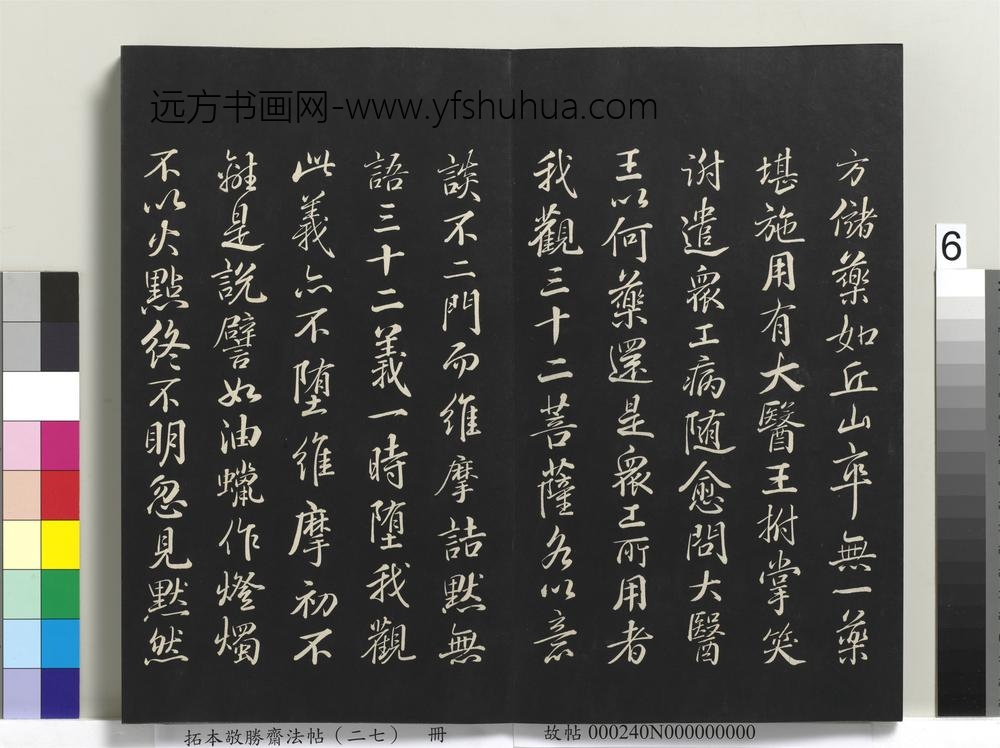 远方书画网-www.yfshuhua.com
方儲藥如丘山卒無一藥
堪施用有大醫王拊掌笑
謝遣衆工病随愈問大醫
王以何藥還是衆工所用者
我觀三十二菩薩各以意
談不二門而維摩詰默無
語三十二義一時墮我觀
此義亦不墮維摩初不
離是說譬如油蠟作燈燭
不以火點終不明忽見默然
6
拓本敬勝齋法帖（二七） 冊
故帖 000240N000000000